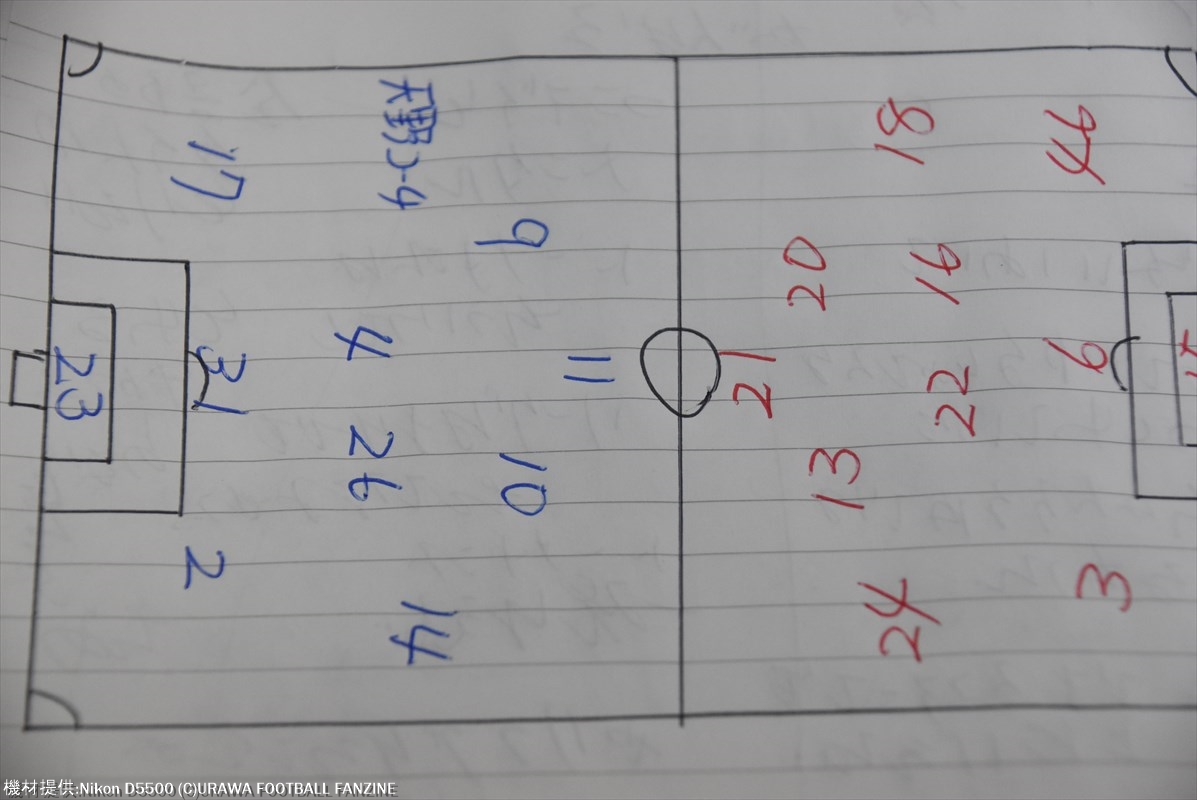 46 6 3
18 16 22 24
20 13
21
11
9 10
天野 4 26 14
17 31 2
23
機材提供:Nikon D5500 (C)URAWA FOOTBALL FANZINE